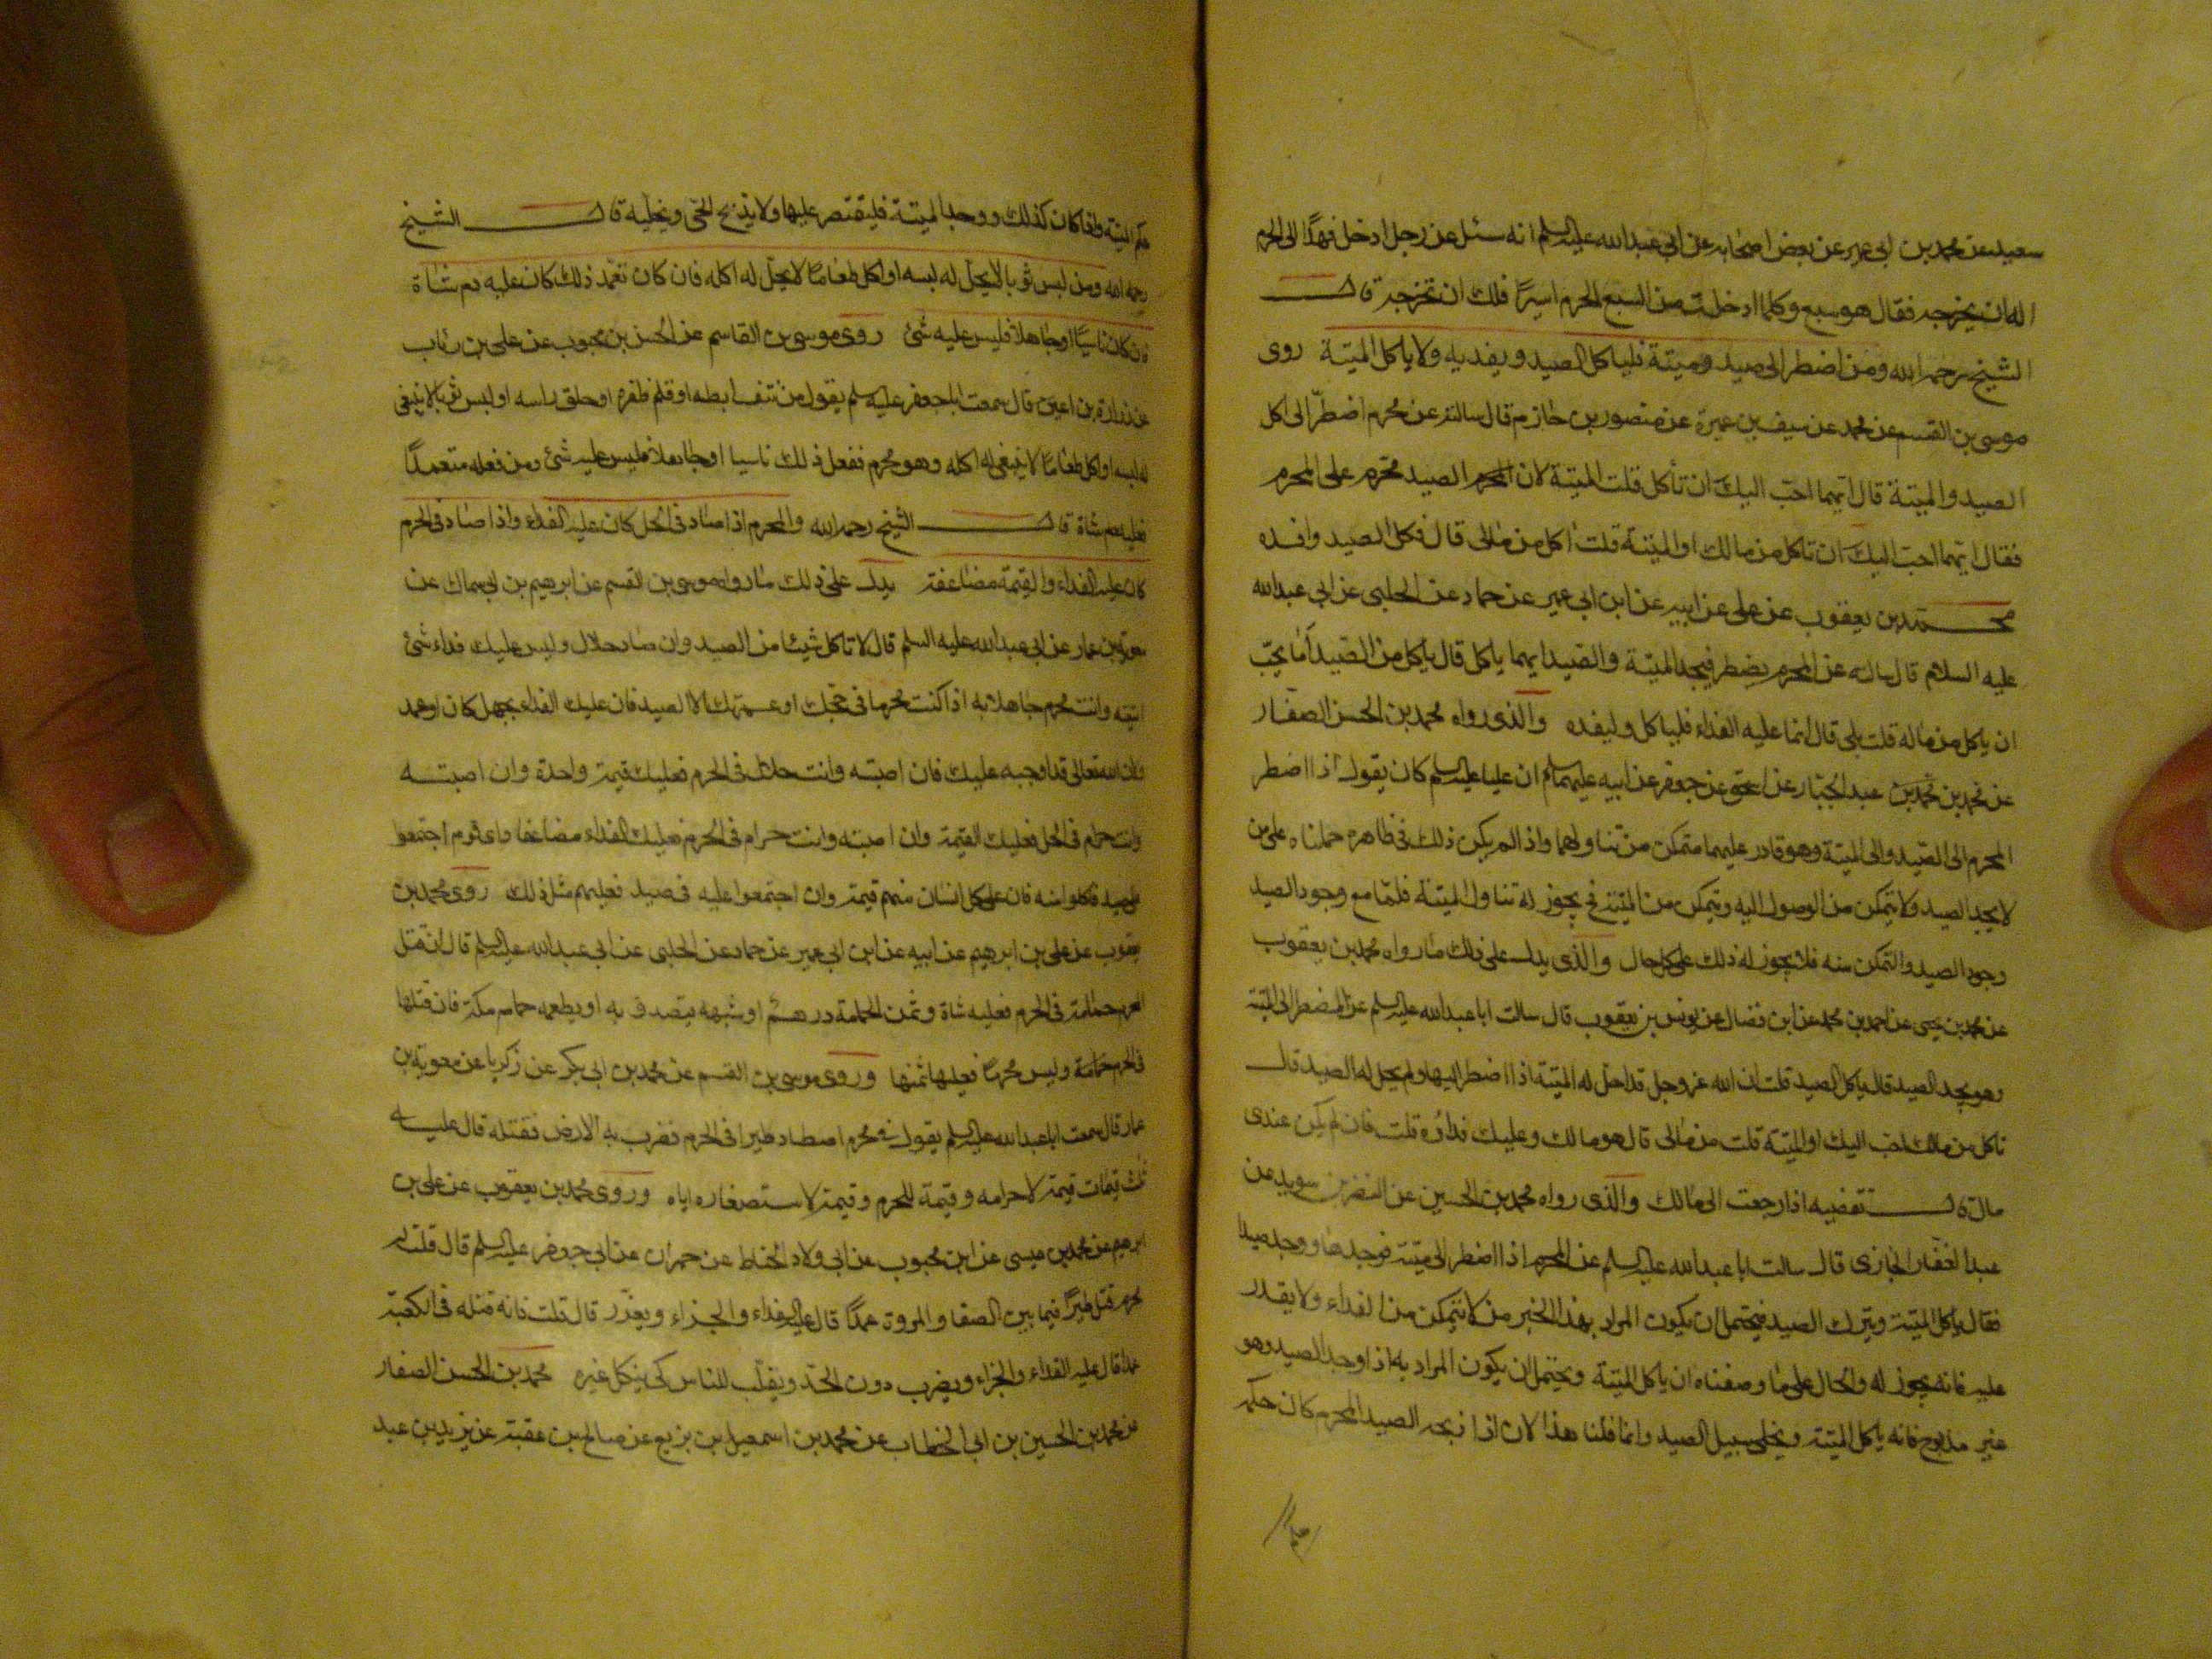 سعيد عن محمد بن ابي عمير عن بعض اصحابه عن ابي عبدالله عليه السلم انه سئل عن رجل ادخل فهدًا الى الحرم
اله ان يخرجه فقال هو سبع وكلما ادخلت من السبع الحرم اسيرًا فلك ان تخرجه قال
الشيخ رحمه الله ومن اضطر الى صيد وميتة فلياكل الصيد ويفديه ولا ياكل الميتة روى
موسى بن القسم عن محمد عن سيف بن عميرة عن منصور بن حازم قال سالته عن محرم اضطرّ الى اكل
الصيد والميتة قال ايّهما احبّ اليك ان تأكل قلت الميتة لان الصيد محّرم على المحرم
فقال ايّهما احبّ اليك ان تاكل من مالك او الميتة قلت اكل من مالى قال فكل الصيد وافده
محمد بن يعقوب عن على عن ابيه عن ابن ابي عمير عن حماد عن الحلبى عن ابي عبدالله
عليه السلام قال سالته عن المحرم يضطر فيجد الميتة والصيد ايهما ياكل قال ياكل من الصيد اما يحبّ
ان ياكل من ماله قلت بلى قال انما عليه الفداء فلياكل وليفده والذى رواه محمد بن الحسن الصفار
عن محمد بن عبد الجبار عن اسحق عن جعفر عن ابيه عليهما السلم ان عليا عليه السلم كان يقول اذا اضطر
المحرم الى الصيد والى الميتة وهو قادر عليهما متمكن من تناولهما واذا لم يكن ذلك فى ظاهره حملناه على من
لا يجد الصيد ولا يتمكن من الوصول اليه ويتمكن من الميتة فح يجوز له تناول الميتة فلمّا مع وجود الصيد
وجود الصيد والتمكن منه فلا يجوز له ذلك على كل حال والذى يدل على ذلك ما رواه محمد بن يعقوب
عن محمد بن يحيى عن احمد بن محمد عن ابن فضال عن يونس بن يعقوب قال سالت ابا عبدالله عليه السلم عن المضطر الى الميتة
وهو يجد الصيد قال ياكل الصيد قلت ان الله عز وجل قد احل له الميتة اذا اضطر اليها ولم يحل له الصيد قال
تاكل من مالك احب اليك او الميتة قلت من مالى قال هو مالك وعليك فداؤه قلت فان لم يكن عندى
مال قال تقضيه اذا رجعت الى مالك والذى رواه محمد بن الحسين عن النضر بن سويد عن
عبد الغفار الجازى قال سالت ابا عبدالله عليه السلم عن المحرم اذا اضطر الى ميتة فوجدها ووجد صيدا
فقال ياكل الميتة ويترك الصيد فيحتمل ان يكون المراد بهذا الخبر من لا يتمكن من الفداء ولا يقدر
عليه فانه يجوز له والحال على ما وصفناه ان ياكل الميتة ويحتمل ان يكون المراد به اذا وجد الصيد وهو
غير مذبوح فانه ياكل الميتة ويخلى سبيل الصيد وانما قلنا هذا لان اذا ذبحه الصيد المحرم كان حكمه
حكم الميتة واذا كان كذلك ووجد الميتة فليقتصر عليها ولا يذبح الحى ويخليه قال الشيخ
رحمه الله ومن لبس ثوبا لا يحلّ له لبسه او اكل طعامًا لا يحلّ له اكله فان كان تعمد ذلك كان عليه دم شاة
فان كان ناسيًا او جاهلا فليس عليه شئ روى موسى بن القاسم عن الحسن بن محبوب عن على بن رئاب
عن زرارة بن اعين قال سمعت ابا جعفر عليه السلم يقول من نتف ابطه او قلم ظفره او حلق راسه او لبس ثوبا لا ينبغى
له لبسه او اكل طعامًا لا ينبغى له اكله وهو محرم ففعل ذلك ناسيا او جاهلا فليس عليه شئ ومن فعله متعمدًا
فعليه دم شاة قال الشيخ رحمه الله والمحرم اذا صاد فى الحل كان عليه الفداء واذا صاد فى الحرم
كان عليه الفداء والقيمة مضاعفة يدل على ذلك ما رواه موسى بن القسم عن ابرهيم بن ابي سماك عن
معوية بن عمار عن ابي عبدالله عليه السلم قال لا تاكل شيئا من الصيد وان صاد حلال وليس عليك فداء شئ
اتيته وانت محرم جاهلا به اذا كنت محرما فى حجك او عمرتك الا الصيد فان عليك الفداء بجهل كان او عمد
ولان الله تعالى قد اوجبه عليك فان اصبته وانت حلال فى الحرم فعليك قيمة واحدة وان اصبته
وانت حرام فى الحل فعليك القيمة وان اصبته وانت حرام فى الحرم فعليك الفداء مضاعفا واى قوم اجتمعوا
على صيد فاكلوا منه فان على كل انسان منهم قيمة وان اجتمعوا عليه فى صيد فعليهم مثل ذلك روى محمد بن
يعقوب عن على بن ابرهيم عن ابيه عن ابن ابي عمير عن حماد عن الحلبى عن ابي عبدالله عليه السلم قال ان قتل
المحرم حمامة فى الحرم فعليه شاة وثمن الحمامة درهم او شبهه يتصدق به او يطعمه حمام مكة فان قتلها
فى الحرم حمامة وليس محرمًا فعليه ثمنها وروى موسى بن القسم عن محمد بن ابي بكر عن زكريا عن معوية بن
عمار قال سمعت ابا عبدالله عليه السلم يقول فى محرم اصطاد طيرا فى الحرم فضرب به الارض فقتله قال عليه
ثلث قيمات قيمة لاحرامه وقيمة للحرم وقيمة لاستصغاره اياه وروى محمد بن يعقوب عن على بن
ابرهيم عن محمد بن عيسى عن ابن محبوب عن ابي ولاد الحناط عن حمران عن ابي جعفر عليه السلم قال قلت له
محرم قتل طيرًا فيما بين الصفا والمروة عمدًا قال عليه الفداء والجزاء ويعزّر قال قلت فانه قتله فى الكعبة
عمدا قال عليه الفداء والجزاء ويضرب دون الحدّ ويقلّب للناس كى ينكل غيره محمد بن الحسن الصفار
عن محمد بن الحسين بن ابي الخطاب عن محمد بن اسمعيل بن بزيع عن صالح بن عقبة عن يزيد بن عبد